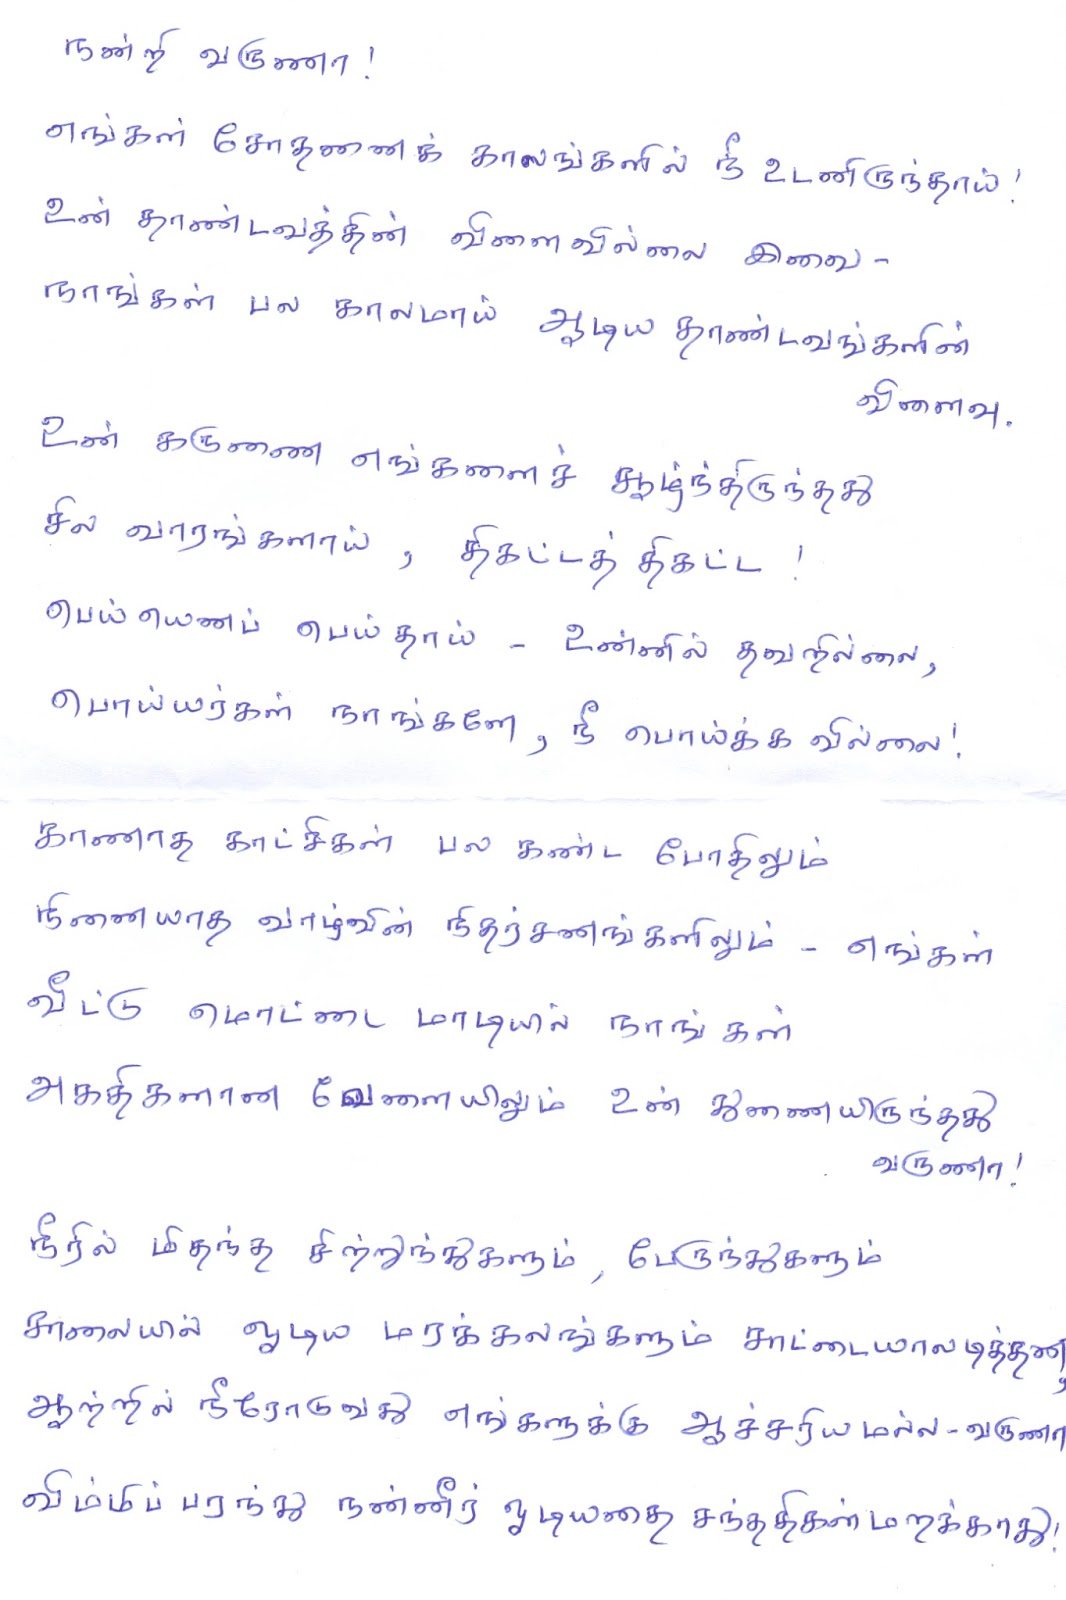 நன்றி வருணா!
எங்கள் சோதனைக் காலங்களில் நீ உடனிருந்தாய்!
உன் தாண்டவத்தின் விளைவில்லை இவை -
நாங்கள் பல காலமாய் ஆடிய தாண்டவங்களின்
விளைவு.
உன் கருணை எங்களைச் சூழ்ந்திருந்தது
சில வாரங்களாய் , திகட்டத் திகட்ட !
பெய்யெனப் பெய்தாய் - உன்னில் தவறில்லை,
பொய்யர்கள் நாங்களே, நீ பொய்க்கவில்லை!
காணாத காட்சிகள் பல கண்ட போதிலும்
நினையாத வாழ்வின் நிதர்சனங்களிலும் - எங்கள்
வீட்டு மொட்டை மாடியில் நாங்கள்
அகதிகளான வேளையிலும் உன் துணையிருந்தது
வருணா!
நீரில் மிதந்த சிற்றுந்துகளும், பேருந்துகளும்
சாலையில் ஓடிய மரக்கலங்களும் சாட்டையாலடித்தன,
ஆற்றில் நீரோடுவது எங்களுக்கு ஆச்சரியமல்ல - வருணா
விம்மிப் பரந்து நன்னீர் ஓடியதை சந்ததிகள் மறக்காது!